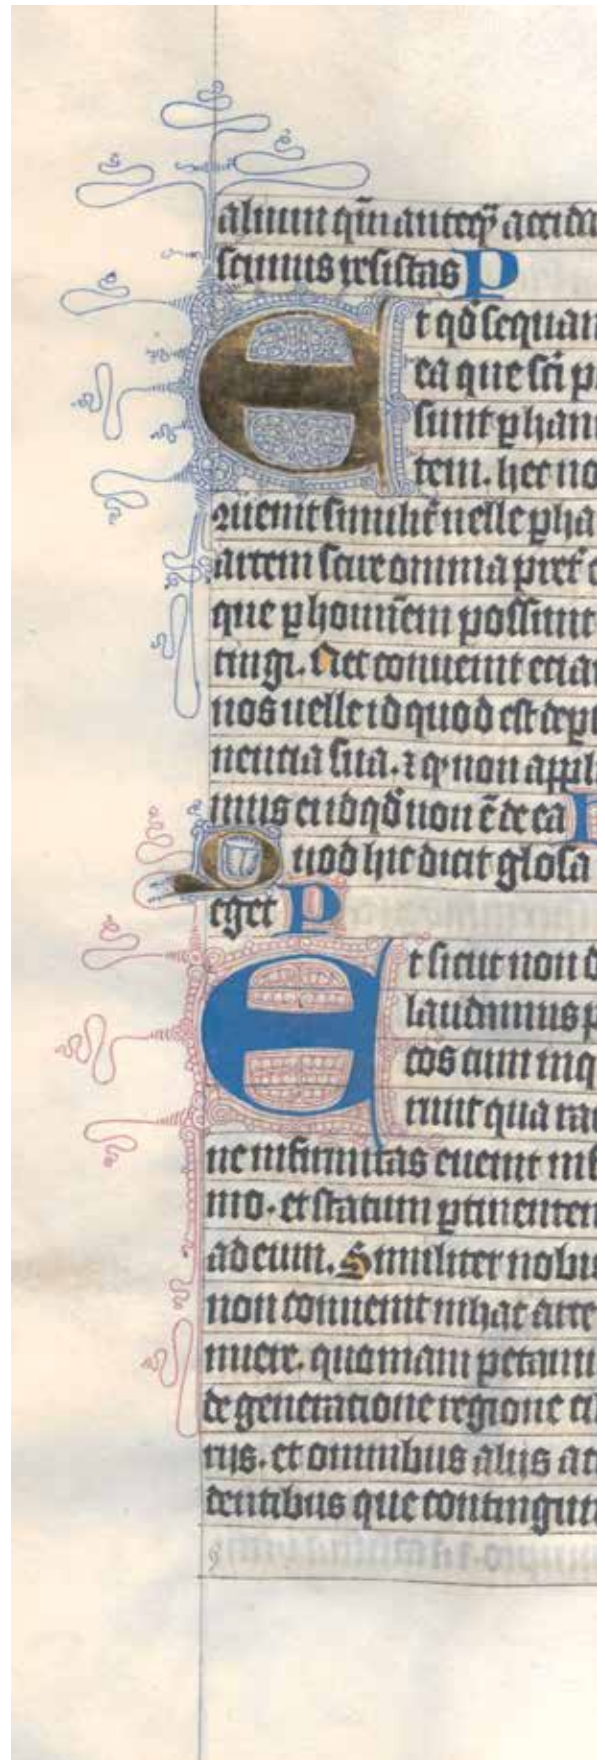 alium qm̄ anteq̄ accide
scimus resistas P
Et qd̄ sequan
ea que sci p
sunt ꝑ hanc
tem. hec no
ꝯuenit similit̓ uelle ꝑ ha
artem scire omnia p̄ret̓
que ꝑ hominem possunt
tingi. Nec conuenit ecia
nos uelle id quod est
nencia sua. ⁊ ꝙ non appli
mus eu id qd̄ non ē de ea
Quod hic dicit glosa
eget P
Et sicut non d
laudamus p
cos cum inq
runt qua rac
ne infirmitas euenit inf
mo. et statum ꝑtinentem
ad eum. Similiter nobis
non conuenit in hac arte
nuere. quoniam petam
de generatione regione
rijs. et omnibus alijs acc
dentibus que contingunt